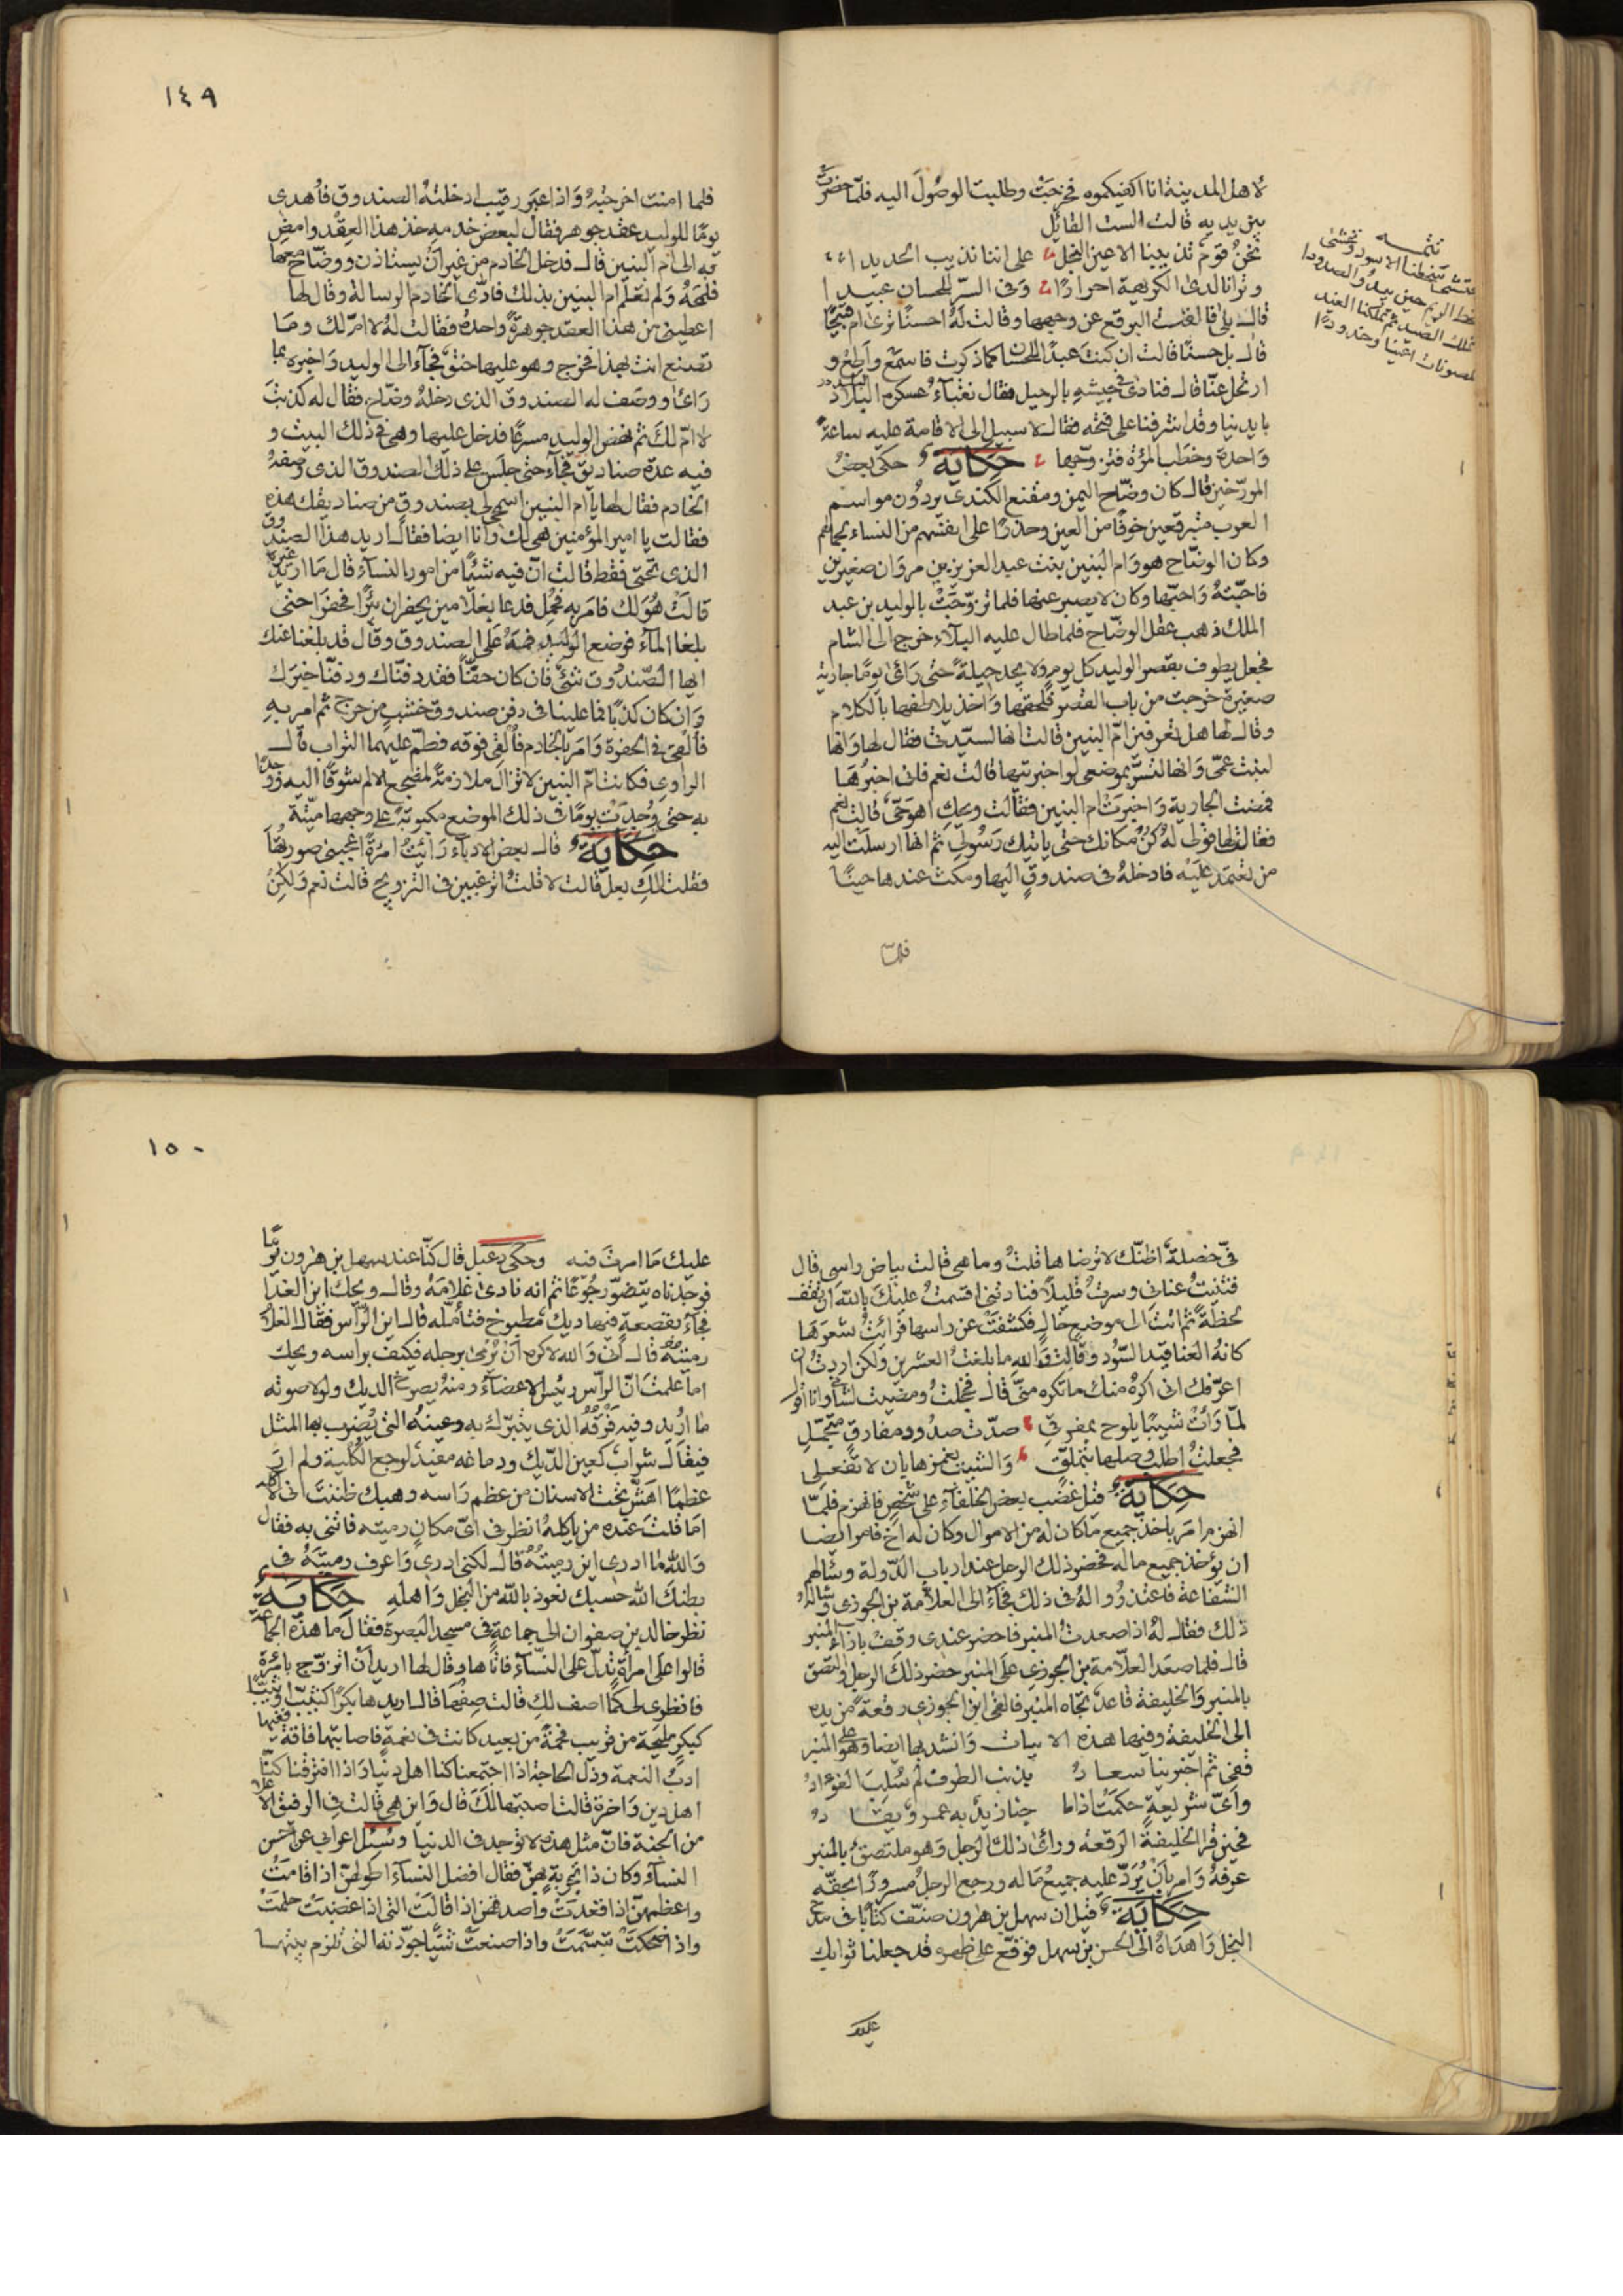 لاهل المدينة انا اكفيكموه فخرجت وطلبت الوصول اليه فلما حضرت
بين يديه قالت الست القائل
نحن قوم تذيبنا الاعين النجل على اننا نذيب الحديدا
وترانا لدى الكريهة احرارًا وفى السرّ للحسان عبيدا
قال بلى فالقت البرقع عن وجهها وقالت له احسنًا ترى ام قبيحًا
قال بل حسنًا قالت ان كنت عبدًا للحسان كما ذكرت فاسمع واطع و
ارتحل عنّا قال فنادى فى جيشه بالرحيل فقال نقباء عسكره البلاد
بايدينا وقد اشرفنا على فتحه فقال لا سبيل الى الاقامة عليه ساعة
واحدة وخطب المرؤة فتزوّجها حكاية حكى بعض
المورّخين قال كان وضّاح اليمن ومقنع الكندى يردون مواسم
العرب متبرقعين خوفًا من العين وحذرًا على انفسهم من النساء بجمالهم
وكان الوضّاح هو وام البنين بنت عبد العزيز بن مروان صغيرين
فاحبّته واحبّها وكان لا يصبر عنها فلما تزوّجت بالوليد بن عبد
الملك ذهب عقل الوضّاح فلما طال عليه البلاء خرج الى الشام
فجعل يطوف بقصر الوليد كل يوم ولا يجد حيلة حتى رأى يومًا جارية
صغيرة خرجت من باب القصر فلحقها واخذ يلاطفها بالكلام
وقال لها هل تعرفين امّ البنين قالت انها لسيّدتى فقال لها وانها
لبنت عمّى وانها لتسرّ بموضعى لو اخبرتيها قالت نعم فانى اخبرها
فمضت الجارية واخبرت ام البنين فقالت ويحك اهو حىّ قالت نعم
فقالت لها قولى له كن مكانك حتى ياتيك رسولى ثم انها ارسلت اليه
من تعتمد عليه فادخله فى صندوق اليها ومكث عندها حينًا
فلما
تتمه
نملك الصيد ثم تملكنا الغيد
فلما امنت اخرجته واذا عبر رقيب ادخلته الصندوق فأهدى
يومًا للوليد عقد جوهر فقال لبعض خدمه خذ هذا العقد وامض
به الى ام البنين قال فدخل الخادم من غير ان يستاذن ووضّاح معها
فلمحه ولم تعلم ام البنين بذلك فادّى الخادم الرسالة وقال لها
اعطينى من هذا العقد جوهرة واحدة فقالت له لا امّ لك وما
تصنع انت بهذا فخرج وهو عليها حنق فجآء الى الوليد واخبره بما
رأى ووصف له الصندوق الذى دخله وضّاح فقال له كذبت
لا امّ لك ثم نهض الوليد مسرعًا فدخل عليها وهى فى ذلك البيت و
فيه عدة صناديق فجآء حتى جلس على ذلك الصندوق الذى وصفه
الخادم فقال لها يا ام البنين اسمحى لى بصندوق من صناديقك هذه
فقالت يا امير المؤمنين هى لك وانا ايضا فقال اريد هذا الصندوق
الذى تحتى فقط قالت انّ فيه شئًا من امور النسآء قال ما اريد غيره
قالت هو لك فامر به فحمل فدعا بغلامين يحفران بئرًا فحفرا حتى
بلغا الماء فوضع الوليد فمه على الصندوق وقال قد بلغنا عنك
ايها الصندوق شئ فان كان حقّا فقد دفنّاك ودفنّا خبرك
وان كان كذبا فما علينا فى دفن صندوق خشب من حرج ثم امر به
فألقى فى الحفرة وامر بالخادم فألقى فوقه فطمّ عليهما التراب قال
الراوى فكانت امّ البنين لا تزال
به حتى وجدت يومًا فى ذلك الموضع مكبوتة على وجهها ميّتة
حكاية قال بعض الادبآء رأيت امرة اعجبنى صورتها
فقلت لك بعل قالت لا قلت اترغبين فى التزويج قالت نعم ولكن
١٤٩
فىّ خصلة اظنّك لا ترضاها قلت وما هى قالت بياض راسى قال
فثنيت عنانى وسرت قليلا فنادتنى اقسمت عليك بالله ان تقف
لحظة ثم اتت الى موضع خال فكشفت عن راسها فرأيت شعرها
كانه العناقيد السّود وقالت والله ما بلغت العشرين ولكن اردت ان
اعرّفك انى اكره منك ما تكره منّى قال فخجلت ومضيت لشأنى وانا اقول
لمّا رأت شيبًا يلوح بمفرقى صدّت صدود مفارق متجمّل
فجعلت اطلب وصلها بتملّق والشيب يغمزها بان لا تفعلى
حكاية قيل غضب بعض الخلفآء على شخص فانهزم فلمّا
انهزم امر باخذ جميع ما كان له من الاموال وكان له اخ فامر ايضا
ان يؤخذ جميع ماله فحضر ذلك الرجل عند ارباب الدّولة وسالهم
الشفاعة فاعتذروا له فى ذلك فجآء الى العلاّمة بن الجوزى وساله
ذلك فقال له اذا صعدت المنبر فاحضر عندى وقف بازآء المنبر
قال فلما صعد العلاّمة بن الجوزى على المنبر حضر ذلك الرجل والتصق
بالمنبر والخليفة قاعد تجاه المنبر فالقى ابن الجوزى رقعة من يده
الى الخليفة وفيها هذه الابيات وانشد بها ايضا وهو على المنبر
قفى ثم اخبرينا سعاد بذنب الطرف لم سُلب الفؤاد
واىّ شريعة حكمت اذا ما جنا زيد به عمرو يقاد
فحين قرا الخليفة الرقعة وراى ذلك الرجل وهو ملتصق بالمنبر
عرفه وامر بان يردّ عليه جميع ماله ورجع الرجل مسرورًا بحقّه
حكاية قيل ان سهل بن هرون صنّف كتابًا فى مدح
البخل واهداه الى الحسن بن سهل فوقّع على ظهره قد جعلنا ثوابك
عليك
١٥٠
عليك ما امرت فيه وحكى دعبل قال كنّا عند سهل بن هرون يومًا
فوجدناه يتضوّر جوعًا ثم انه نادى غلامه وقال ويحك اين الغدا
فجآء بقصعة فيها ديك مطبوخ فتأمله قال اين الرأس فقال الغلام
رميته قال انى والله لاكره ان يرمى برجله فكيف براسه ويحك
اما علمت انّ الرأس رئيس الاعضآء ومنه يصرخ الديك ولولا صوته
ما اريد وفيه فرقه الذى يتبرّك به وعينه التى يضرب بها المثل
فيقال شراب كعين الدّيك ودماغه مفيد لوجع الكلية ولم ار
عظمًا اهشّ تحت الاسنان من عظم راسه وهبك ظننت انى لا اكله
اما قلت عنده من ياكله انظر فى اىّ مكان رميته فاتنى به فقال
والله ما ادرى اين رميته قال لكنى ادرى واعرف رميته فى
بطنك الله حسبك نعوذ بالله من البخل واهله حكاية
نظر خالد بن صفوان الى جماعة فى مسجد البصرة فقال ما هذه الجماعة
قالوا على امرأة تدلّ على النسآء فاتاها وقال لها اريد ان اتزوّج بامرة
فانظرى لى كما اصف لك قالت صفها قال اريدها بكرًا كثيّب او ثيّبًا
كبكر مليحة من قريب فخمة من بعيد كانت فى نعمة فاصابتها فاقة فعيها
ادب النعمة وذلّ الحاجة اذا اجتمعنا كنا اهل دنيا واذا افترقنا كنّا
اهل دين واخرة قالت اصبتها لك قال واين هى قالت فى الرفيق الاعلى
من الجنة فانّ مثل هذه لا توجد فى الدنيا وسئل اعرابى عن احسن
النسآء وكان ذا تجربة بهنّ فقال افضل النسآء اطولهنّ اذا قامت
واعظمهنّ اذا قعدت واصدقهن اذا قالت التى اذا غضبت حلمت
واذا ضحكت تبسّمت واذا صنعت شئًا جوّدته التى تلزم بيتها